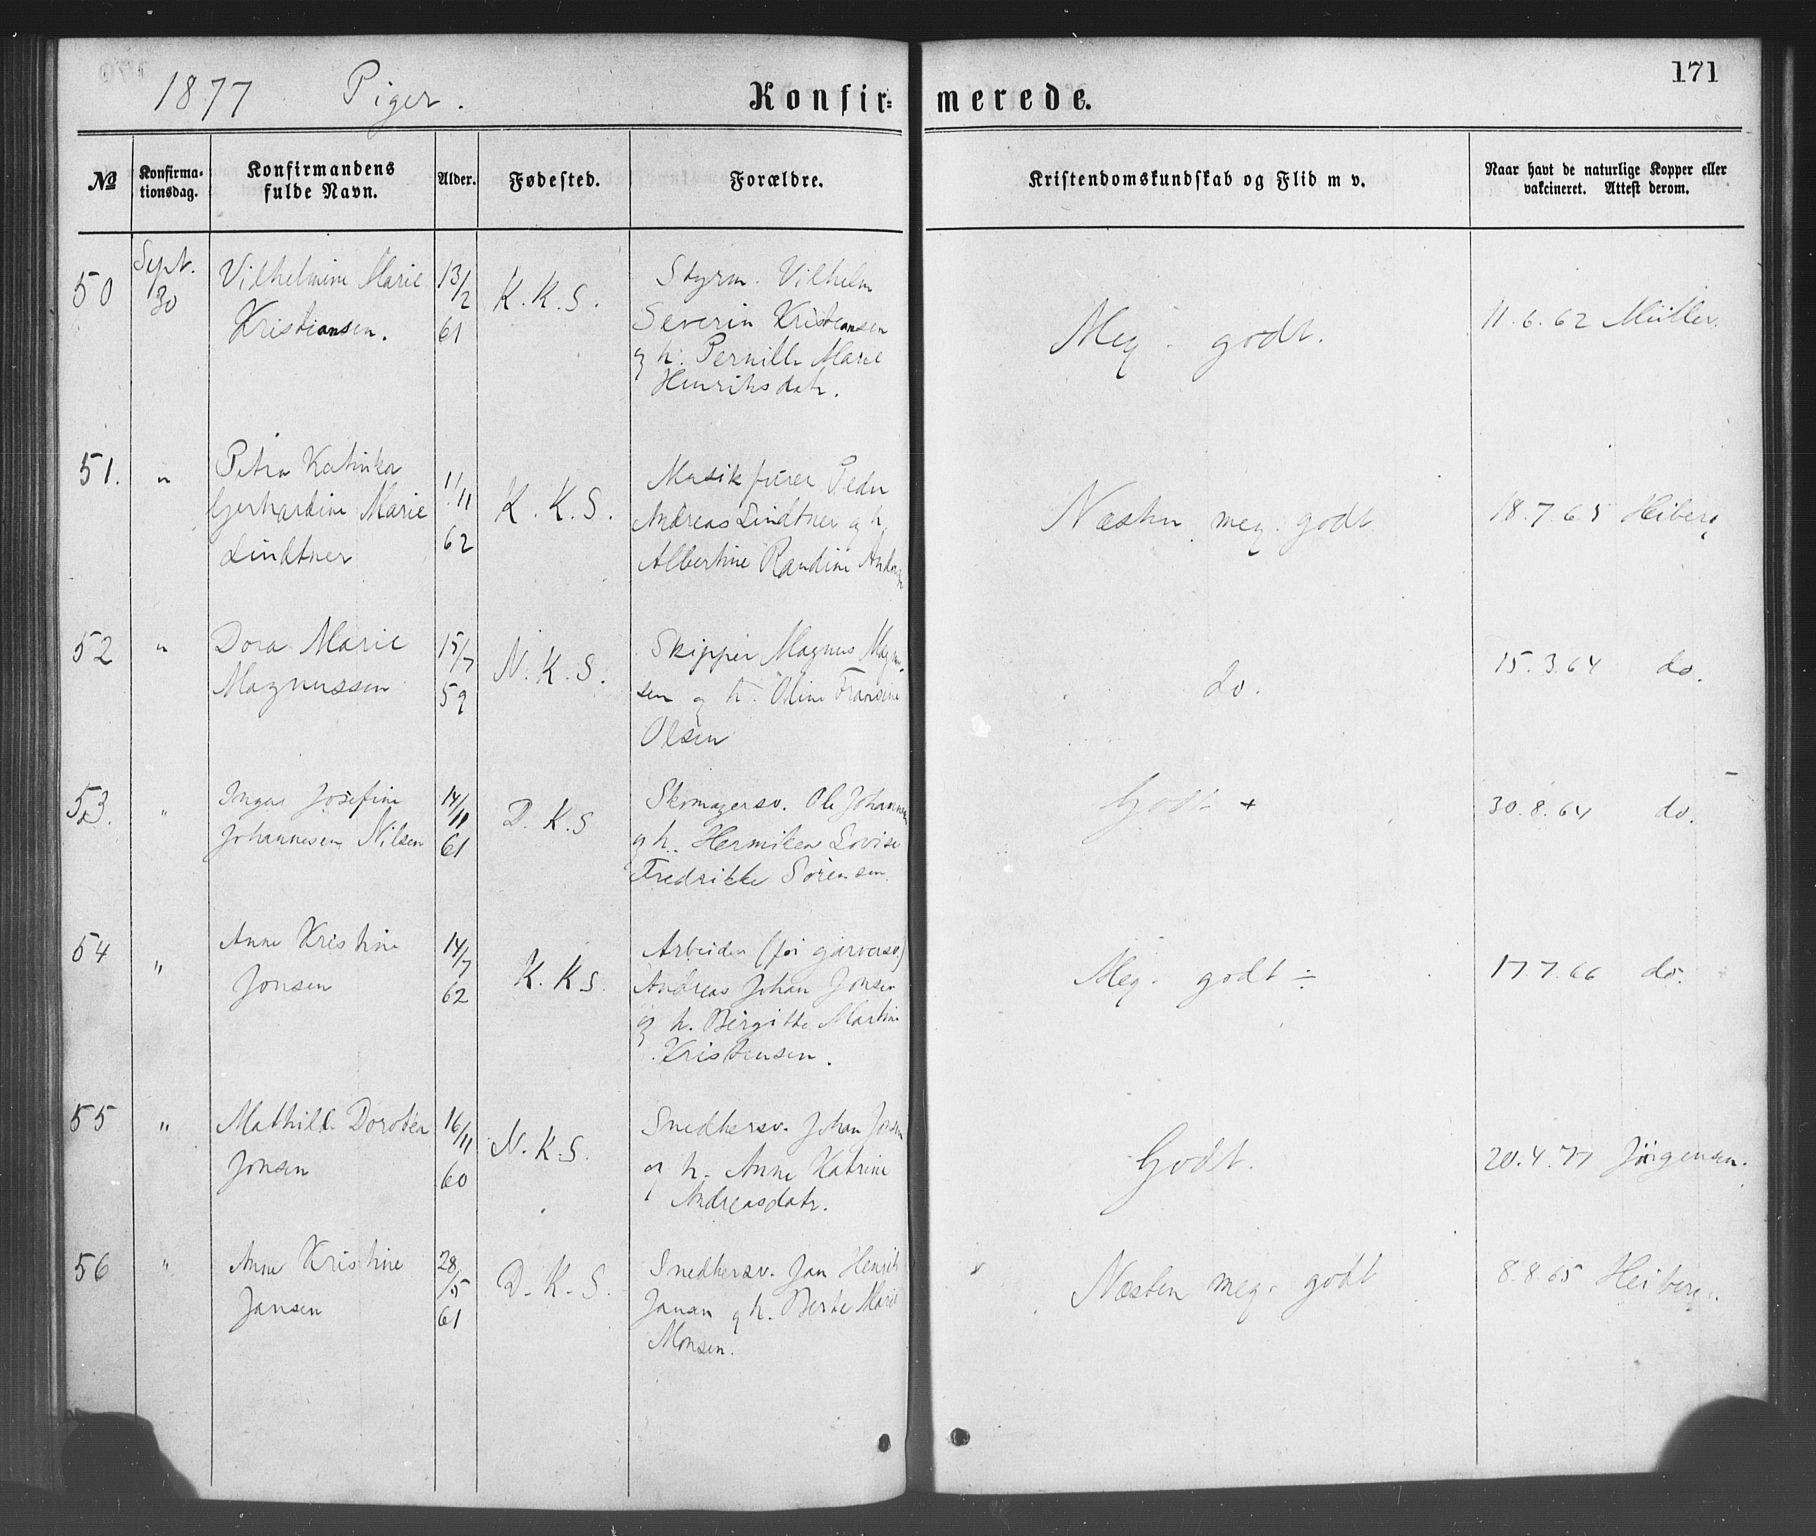 1877 Piger. Konfir- merede. 171
No Konfirma-tionsdag. Konfirmandens fulde Navn. Alder. Fødested. Forældre. Kristendomskundskab og Flid m v. Naar havt de naturlige Kopper eller vakcineret. Attest derom.
50 Sept. 30 Vilhelmine Marie 13/2 K. K. S. Styrm. Vilhelm
Kristiansen. 61 Severin Kristiansen Meg. godt. 11.6.62 Müller.
og h. Pernille Marie
Henriksdatr.
51. " Petra Katinka Musikfürer Peder
Gerhardine Marie 1/11 K. K. S. Andreas Lindtner og h. Næsten meg. godt 18.7.65 Heiberg
Lindtner 62 Albertine Randine
52 " Dora Marie 15/7 N. K. S. Skipper Magnus Magnus-
Magnussen 59 sen og h. Oline do. 15.3.64 do.
Olsen
53. " Inga Josefine 14/11 D. K. S Skomagersv. Ole Johannesen Godt + 30.8.64 do.
Johannesen Nilsen 61 og h. Hermiken Lovise
Fredrikke Sørensen.
54 " Anne Kristine 14/7 K. K. S. Arbeider (før garversv.)
Jonsen 62 Andreas Johan Jonsen Meg. godt ÷ 17.7.66 do.
og h. Birgitte Martine
Kristensen.
55 " Mathilde Dorotea 16/11 N. K. S. Snedkersv. Johan Jonsen
Jonsen 60 og h. Anne Katrine Godt. 20.4.77 Jörgensen.
Andreasdatr.
56 " Anne Kristine 28/5 D. K. S. Snedkersv. Jan Henrik
Jansen 61 Jansen og h. Berte Marie Næsten meg. godt 8.8.65 Heiberg.
Monsen.